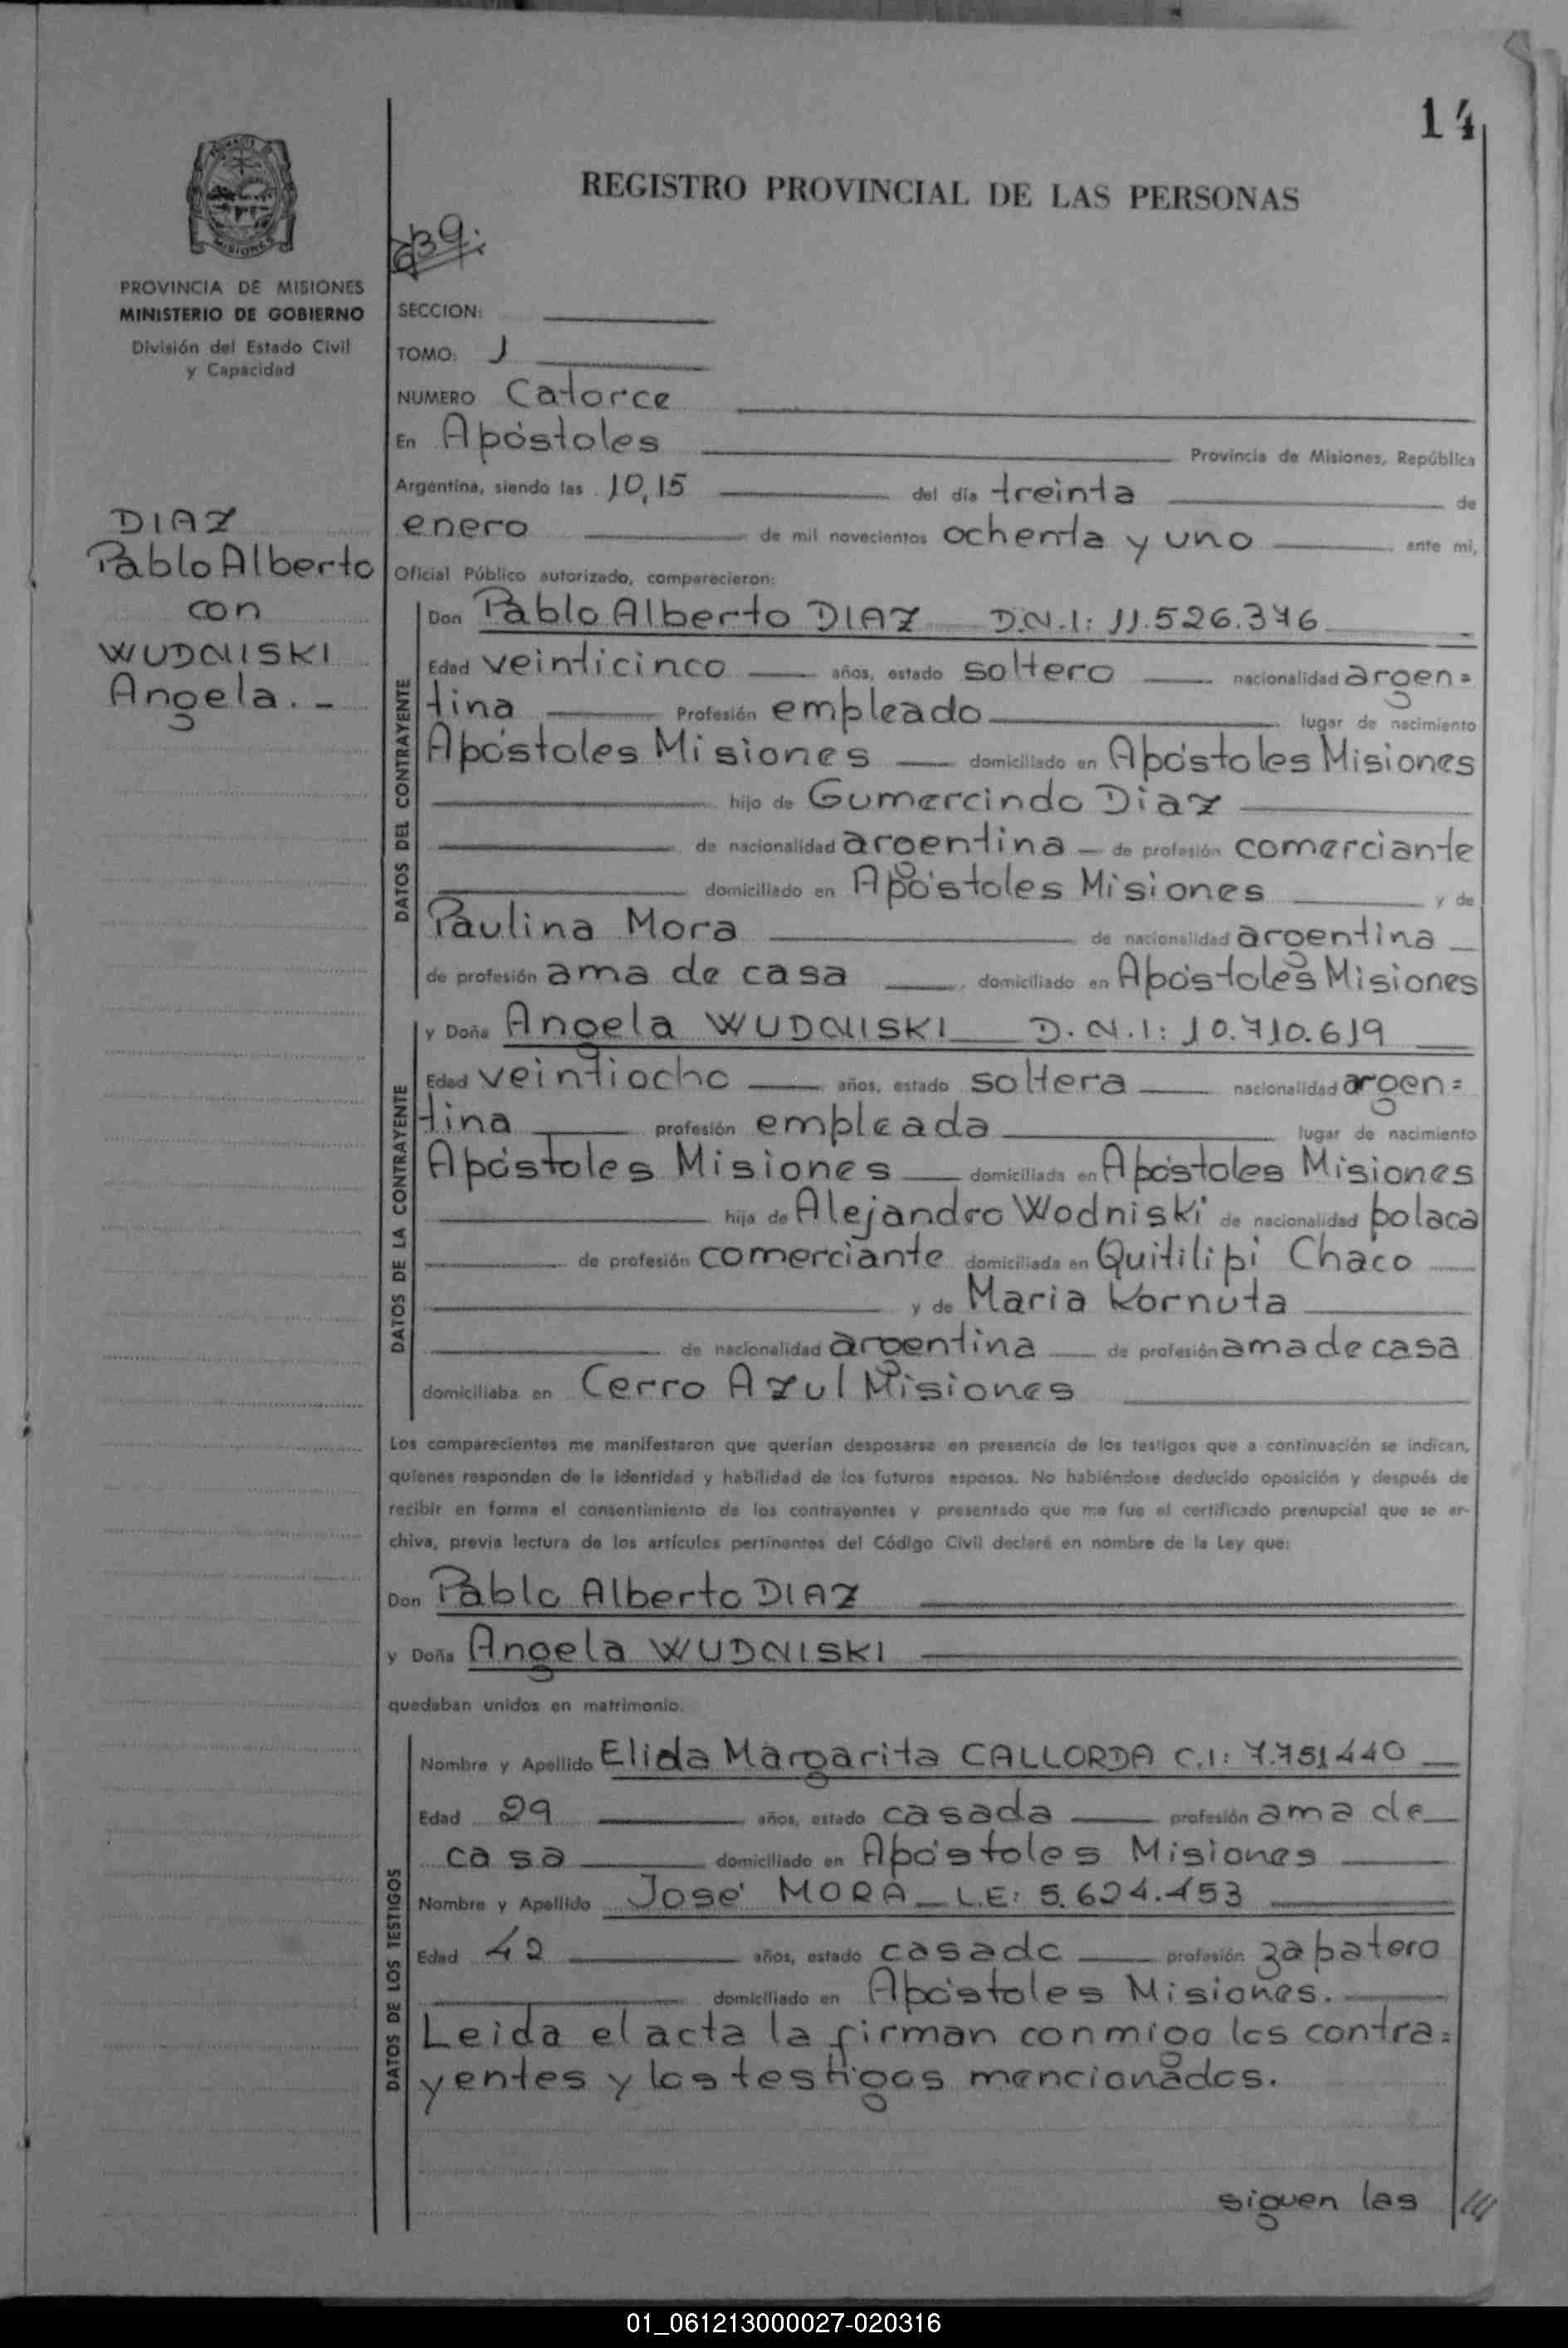 14
REGISTRO PROVINCIAL DE LAS PERSONAS
MISIONES
PROVINCIA DE MISIONES
MINISTERIO DE GOBIERNO
División del Estado Civil
y Capacidad
DIAZ
Pablo Alberto
con
WUDNISKI
Angela. -
639.
SECCION:
TOMO: I
NUMERO Catorce
En Apóstoles Provincia de Misiones, República
Argentina, siendo las 10,15 del día treinta de
enero de mil novecientos ochenta y uno ante mi,
Oficial Público autorizado, comparecieron:
DATOS DEL CONTRAYENTE
Don Pablo Alberto DIAZ D.N.I: 11.526.376
Edad veinticinco años, estado soltero nacionalidad argen=
tina Profesión empleado lugar de nacimiento
Apóstoles Misiones domiciliado en Apóstoles Misiones
hijo de Gumercindo Diaz
de nacionalidad argentina de profesión comerciante
domiciliado en Apóstoles Misiones y de
Paulina Mora de nacionalidad argentina
de profesión ama de casa domiciliado en Apóstoles Misiones
DATOS DE LA CONTRAYENTE
y Doña Angela WUDNISKI D.N.I: 10.710.619
Edad veintiocho años, estado soltera nacionalidad argen=
tina profesión empleada lugar de nacimiento
Apóstoles Misiones domiciliada en Apóstoles Misiones
hija de Alejandro Wodniski de nacionalidad polaca
de profesión comerciante domiciliada en Quitilipi Chaco
y de Maria Kornuta
de nacionalidad argentina de profesión ama de casa
domiciliaba en Cerro Azul Misiones
Los comparecientes me manifestaron que querían desposarse en presencia de los testigos que a continuación se indican,
quienes responden de la identidad y habilidad de los futuros esposos. No habiéndose deducido oposición y después de
recibir en forma el consentimiento de los contrayentes y presentado que me fue el certificado prenupcial que se ar-
chiva, previa lectura de los artículos pertinentes del Código Civil declaré en nombre de la Ley que:
Don Pablo Alberto DIAZ
y Doña Angela WUDNISKI
quedaban unidos en matrimonio.
DATOS DE LOS TESTIGOS
Nombre y Apellido Elida Margarita CALLORDA C.I: 7.751440
Edad 29 años, estado casada profesión ama de
casa domiciliado en Apóstoles Misiones
Nombre y Apellido José MORA L.E: 5.624.153
Edad 42 años, estado casado profesión zapatero
domiciliado en Apóstoles Misiones.
Leida el acta la firman conmigo los contra=
yentes y los testigos mencionados.
siguen las ///
01_061213000027-020316